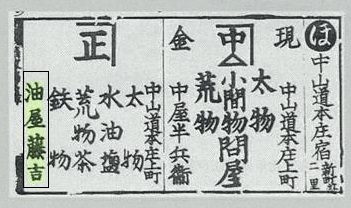 ほ
中山道本庄宿
二里
現
中山道本庄上町
中
太物
小間物問屋
荒物
金
中屋半兵衛
中山道本庄上町
正
太物
水油鹽
荒物茶
鉄物
油屋藤吉